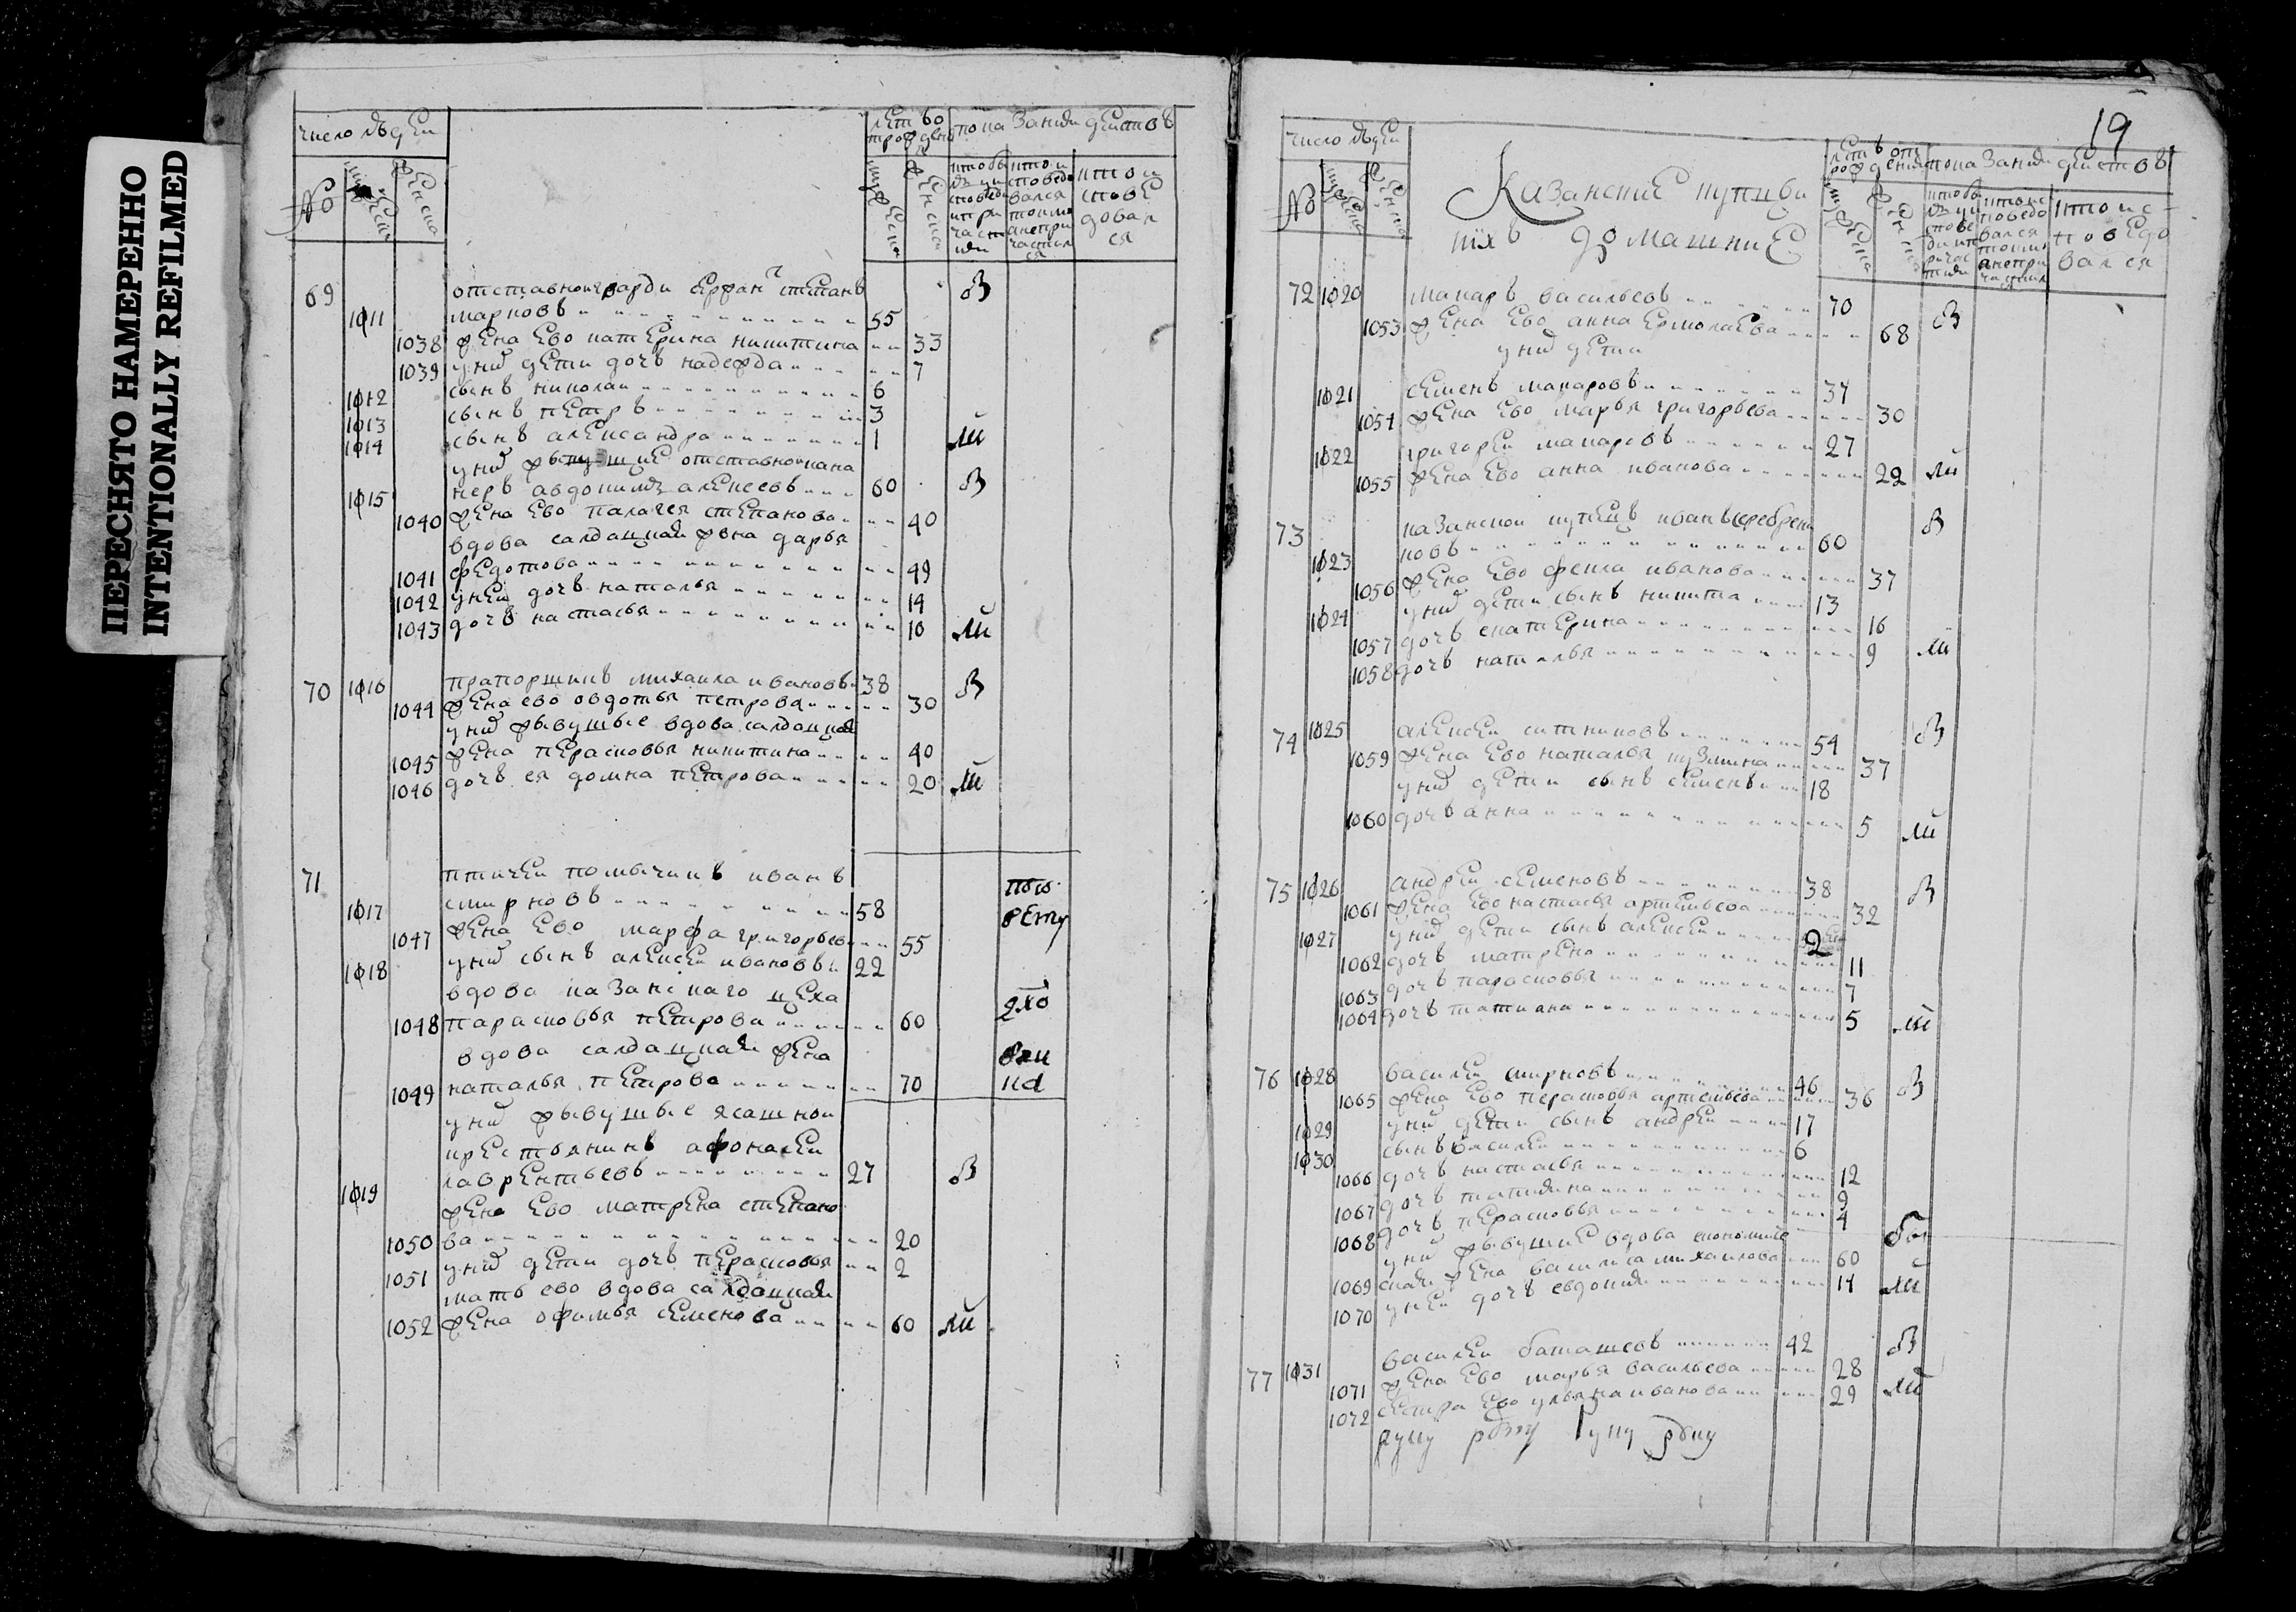 ПЕРЕСНЯТО НАМЕРЕННО
INTENTIONALLY REFILMED
число людеи
лет во
показани деиство
№
мужеска
женска
69
отставнои степанъ
1011 марковъ 55
1038 жена ево катерина никитина 33
1039 у них дети дочь надежда 7
1012 сынъ николаи 6
1013 сынъ петръ 3
1014 сынъ александра 1
у них отставнои кана
1015 неръ алексеевъ 60
1040 жена ево палагея степанова 40
вдова салдацкая жена дарья
1041 федотова 49
1042 у неи дочь наталья 14
1043 дочь настасья 10
70 1016 прапорщикъ михаила ивановъ 38
1044 жена ево овдотья петрова 30
у них живущые вдова салдацкая
1045 жена перасковья никитина 40
1046 дочь ея домна петрова 20
71
птичеи помычикъ иванъ
1017 смирновъ 58
1047 жена ево марфа григорьева 55
1018 у них сынъ алексеи ивановъ 22
вдова казанскаго цеха
1048 парасковья петрова 60
вдова салдацкая жена
1049 наталья петрова 70
у них живущые ясашнои
крестьянинъ афонасеи
1019 лаврентьевъ 27
жена ево матрена степано
1050 ва 20
1051 у них дети дочь перасковья 2
мать ево вдова салдацкая
1052 жена офимья семенова 60
19
число людеи
показани деиство
№
Казанские купцы
ихъ домашние
72 1020 макаръ васильевъ 70
1053 жена ево анна ермолаева 68
у них дети
1021 семенъ макаровъ 34
1054 жена ево марья григорьева 30
1022 григореи макаровъ 27
1055 жена ево анна иванова 22
73
казанскои купецъ иванъ серебрени
1023 ковъ 60
1056 жена ево фекла иванова 37
1024 у них дети сынъ никита 13
1057 дочь екатерина 16
1058 дочь наталья 9
74 1025 алексеи ситниковъ 54
1059 жена ево наталья кузмина 37
у них дети сынъ семенъ 18
1060 дочь анна 5
75 1026 андреи семеновъ 38
1061 жена ево настасья артемьева 32
1027 у них дети сынъ алексеи 2
1062 дочь матрена 11
1063 дочь парасковья 7
1064 дочь татиана 5
76 1028 василеи смирновъ 46
1065 жена ево перасковья артемьева 36
1029 у них дети сынъ андреи 17
1030 сынъ василеи 6
1066 дочь настасья 12
1067 дочь татияна 9
1068 дочь перасковья 4
у них живущие вдова економиче
1069 ская жена василиса михаилова 60
1070 у неи дочь евдокия 14
77 1031 василеи баташевъ 42
1071 жена ево марья васильева 28
1072 сестра ево ульяна иванова 29